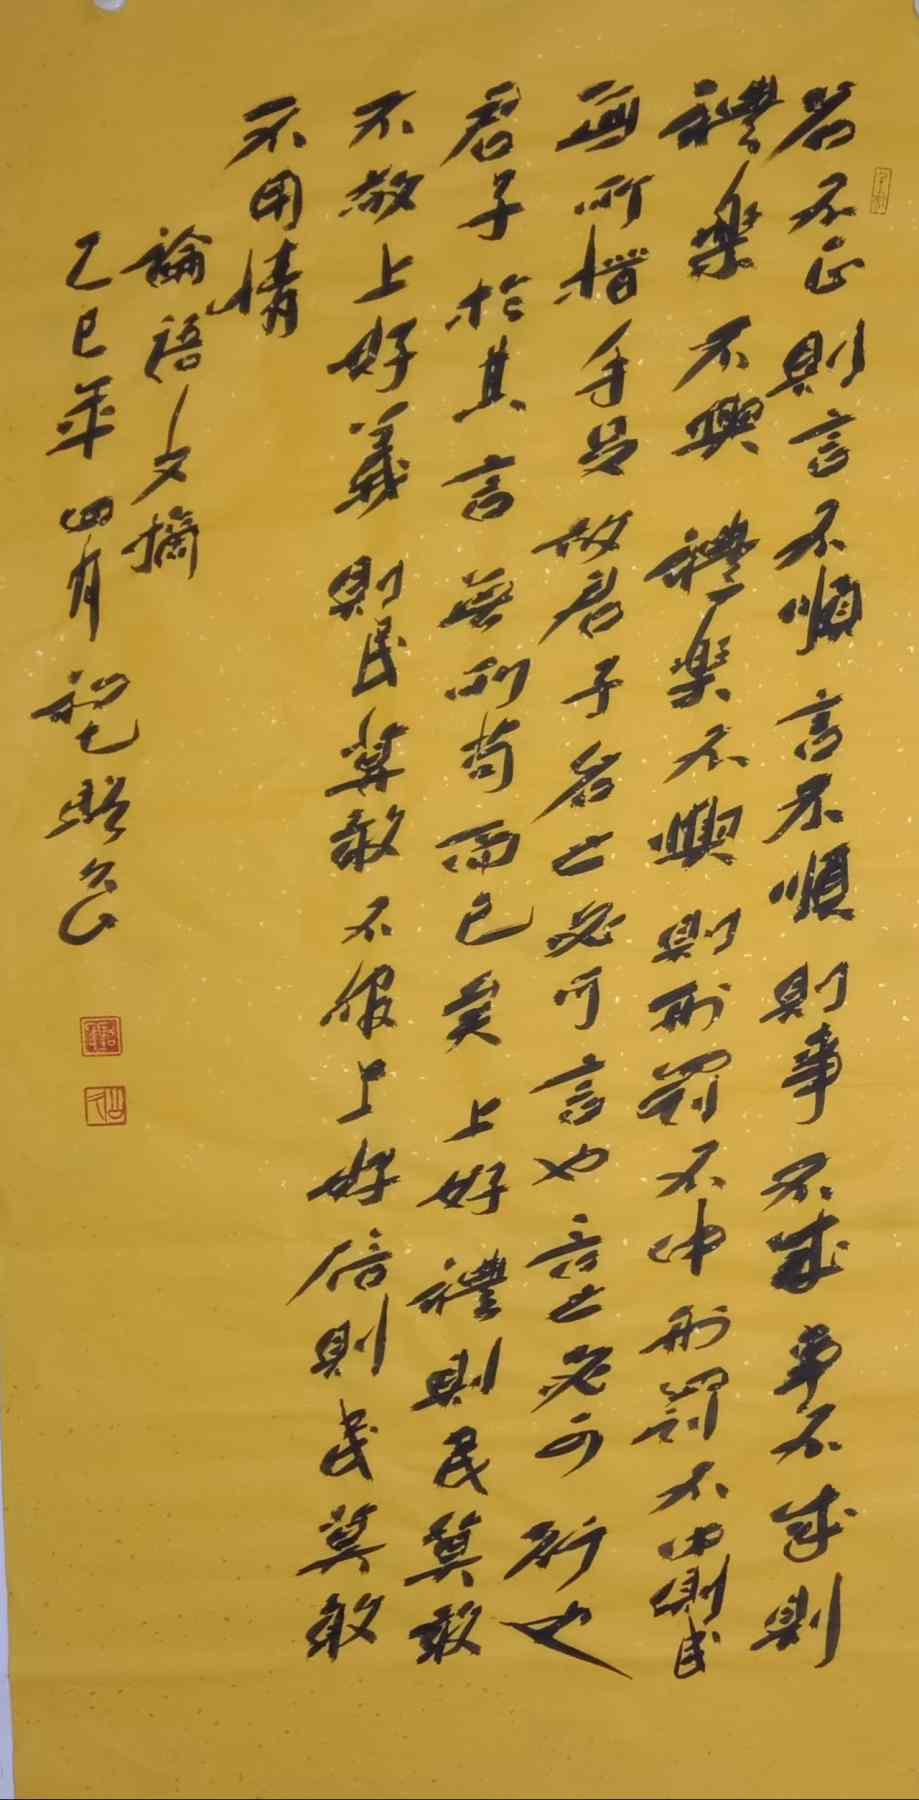 名不正則言不順言不順則事不成事不成則
禮樂不興禮樂不興則刑罰不中刑罰不中則民
無所措手足故君子名之必可言也言之必可行也
君子於其言無所苟而已矣上好禮則民莫敢
不敬上好義則民莫敢不服上好信則民莫敢
不用情
論語文摘
乙巳年四月